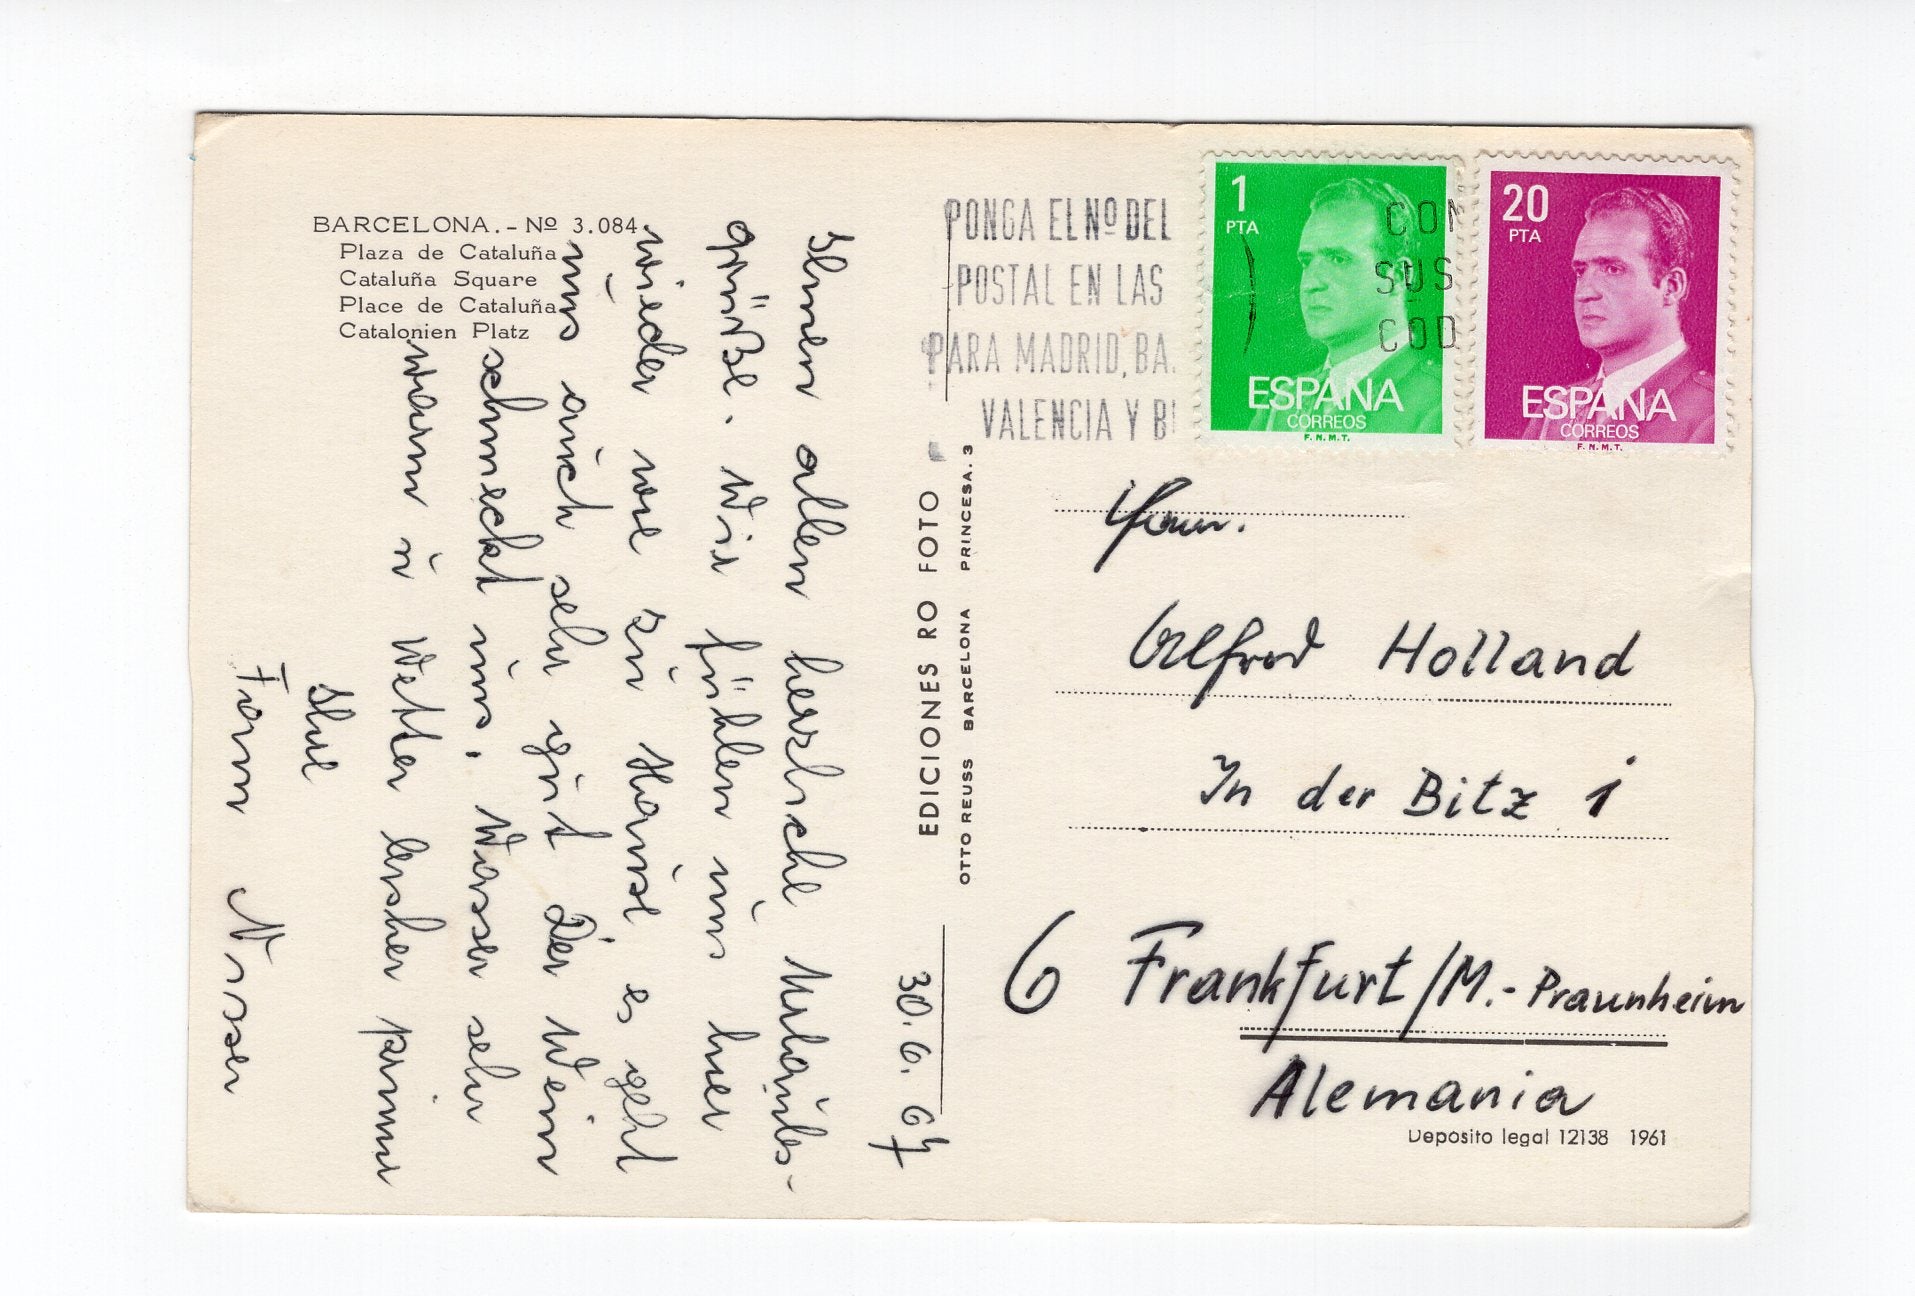 BARCELONA. - Nº 3.084
Plaza de Cataluña
Cataluña Square
Place de Cataluña
Catalonien Platz
30. 6. 64
Ihnen allen herzliche Urlaubs-
grüße. Wir fühlen uns hier
wieder wie zu Hause es geht
uns auch sehr gut Der Wein
schmeckt uns, Wasser sehr
warm u Wetter bisher prima
Ihre
Fam Nisser
EDICIONES RO FOTO
OTTO REUSS BARCELONA PRINCESA. 3
PONGA EL Nº DEL
POSTAL EN LAS
PARA MADRID, BA
VALENCIA Y B
CON
SUS
COD
1
PTA
ESPAÑA
CORREOS
F. N. M. T.
20
PTA
ESPAÑA
CORREOS
F. N. M. T.
Fam.
Alfred Holland
In der Bitz 1
6 Frankfurt/M.-Praunheim
Alemania
Deposito legal 12138 1961